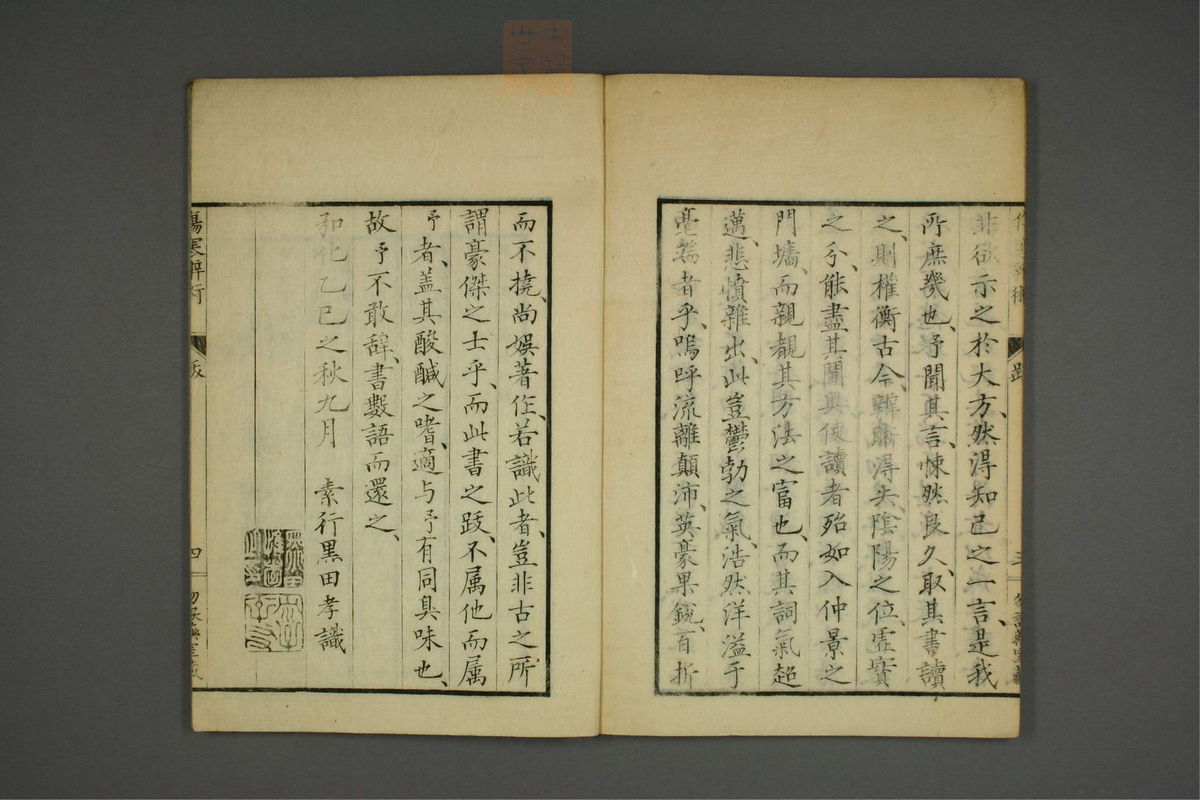 非欲示之於大方、然得知己之一言、是我
所庶幾也、予聞其言、悚然良久、取其書讀
之、則權衡古今、辨論得失、陰陽之位、虛實
之分、能盡其閫奧、使讀者殆如入仲景之
門墻、而親覩其方法之富也、而其詞氣超
邁、悲憤雜出、此豈鬱勃之氣、浩然洋溢于
毫端者乎、嗚呼流離顛沛、英豪果銳、百折
而不撓、尚娛著作、若識此者、豈非古之所
謂豪傑之士乎、而此書之跋、不属他而属
予者、蓋其酸鹹之嗜、適与予有同臭味也、
故予不敢辭、書數語而還之、
化乙巳之秋九月 素行黑田孝識
傷寒辨術 跋 四